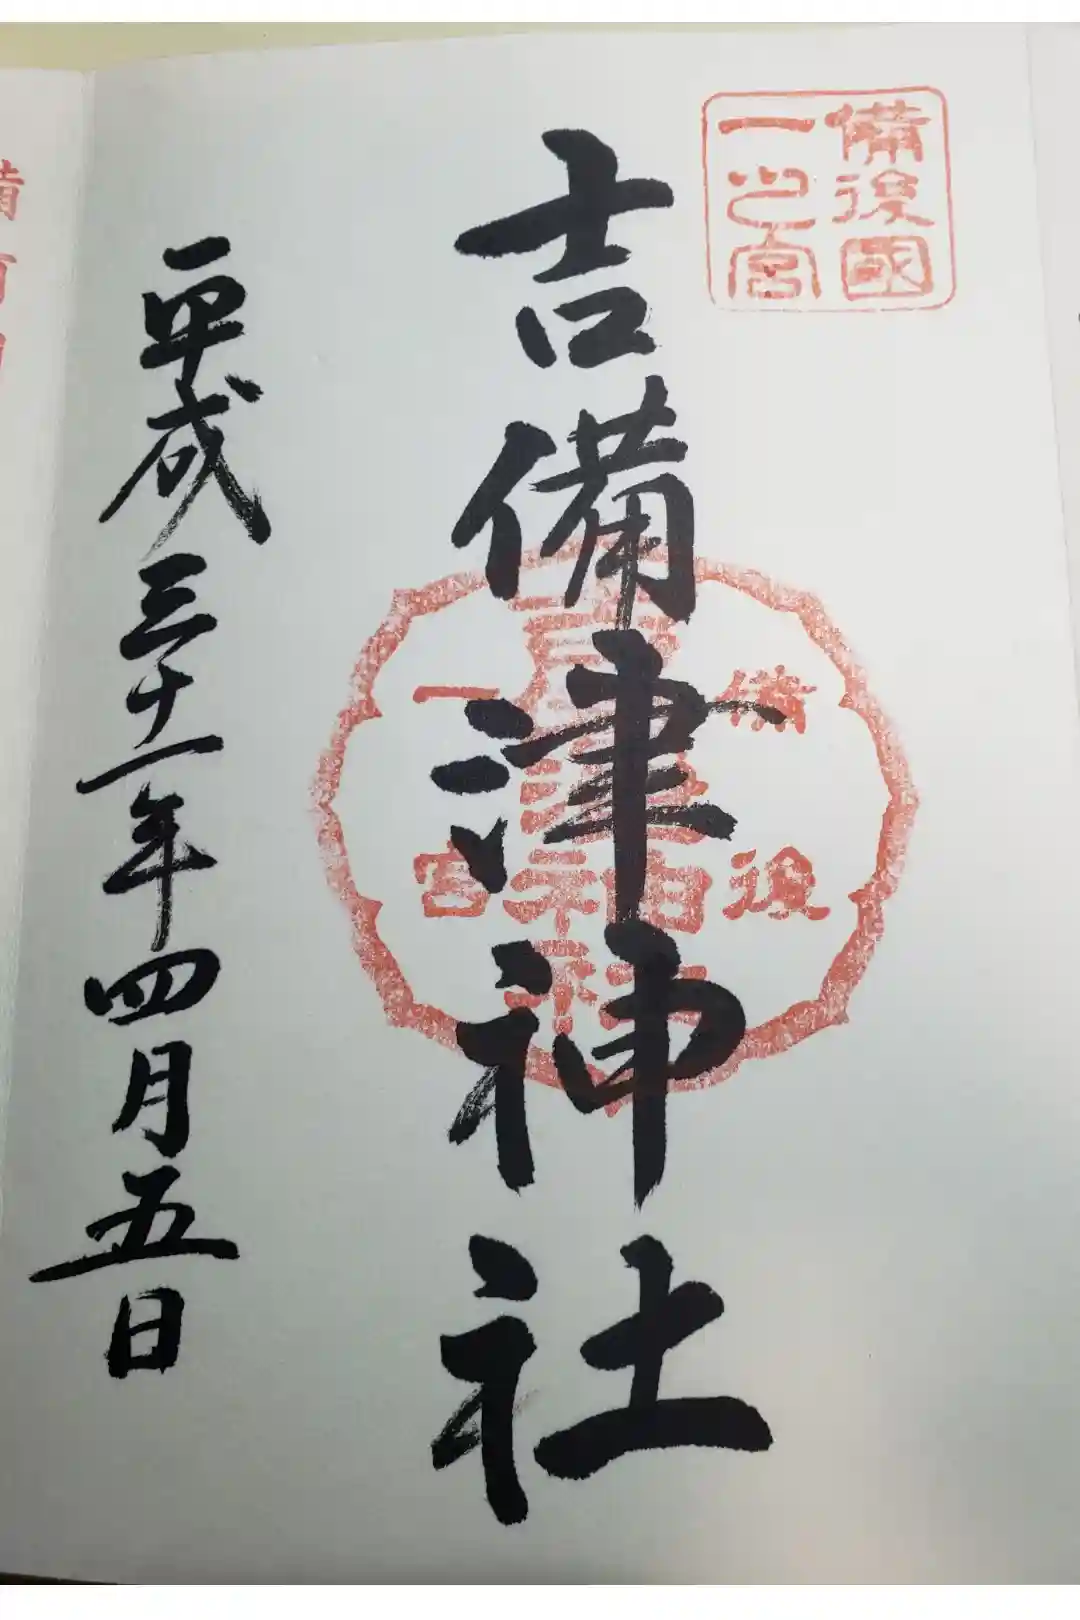 備後國
一之宮
吉備津神社
備後
一宮
平成三十一年四月五日